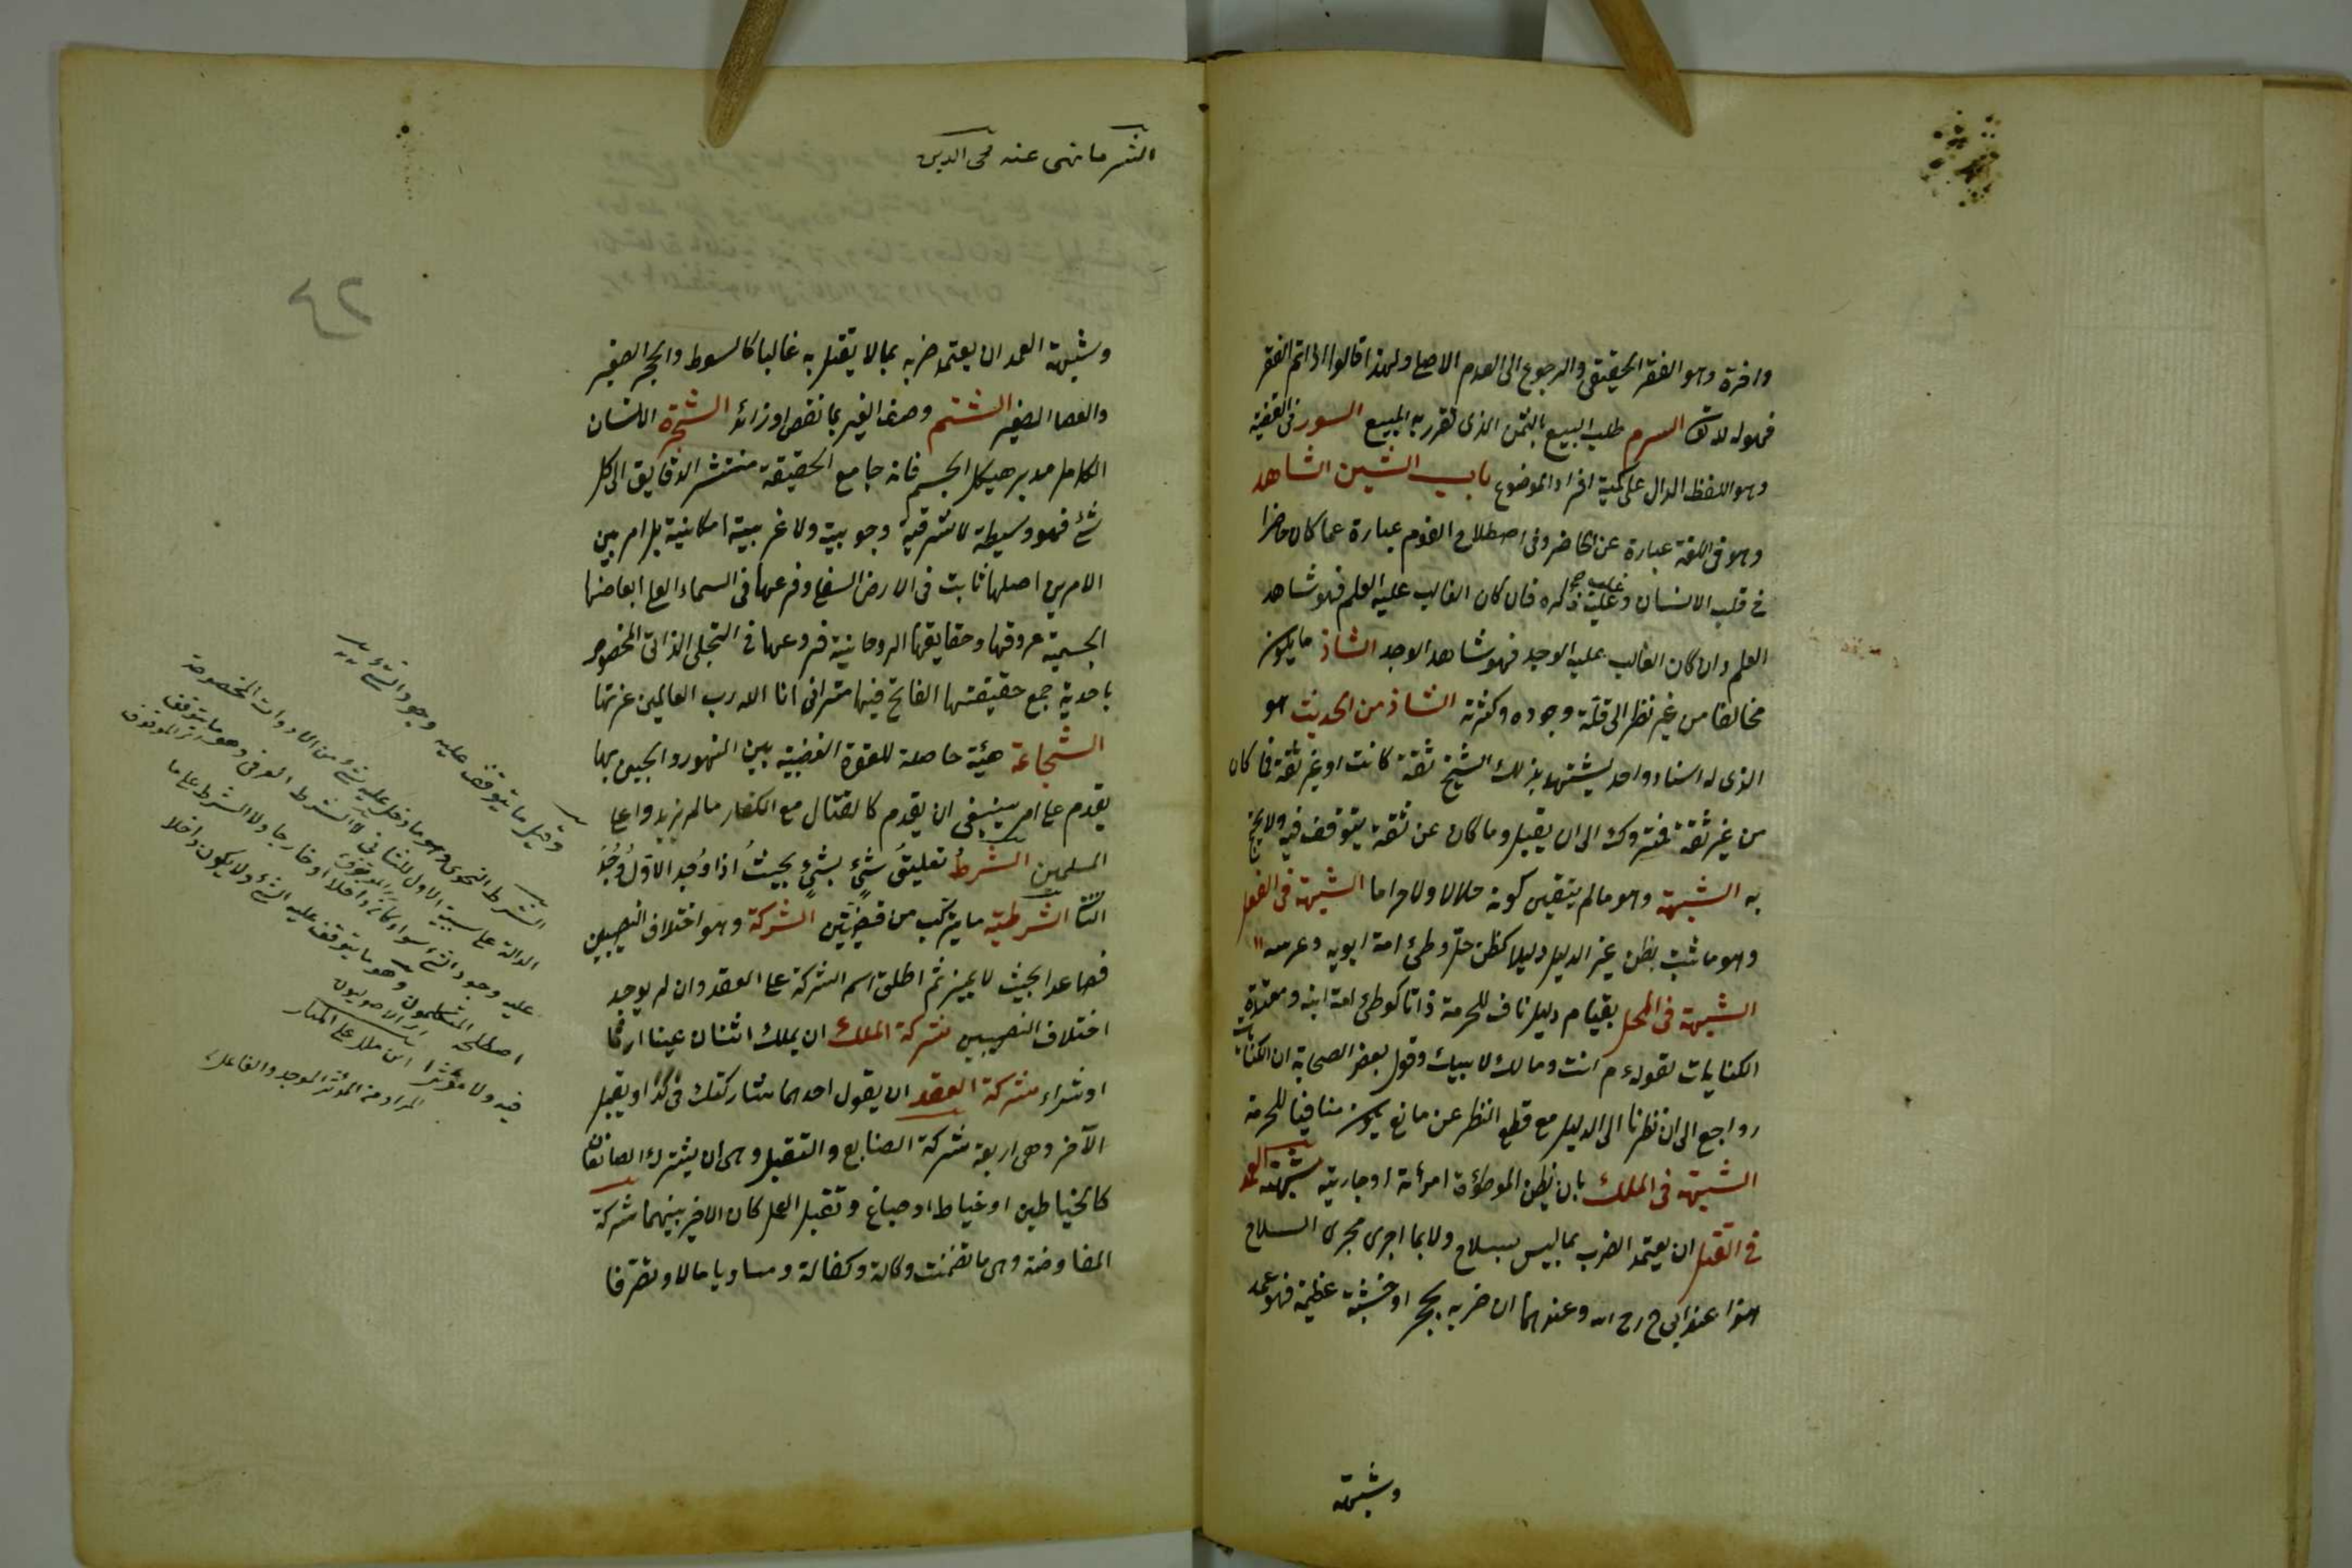 وافرة وهو الفقر الحقيقي والرجوع الى العدم الاصلي ولهذا قالوا اذا تم الفقر
فهو الله السرم طلب المبيع بالثمن الذى تقرر به المبيع السور في القضية
وهو اللفظ الدال على كمية افراد الموضوع باب الشين الشاهد
وهو في اللغة عبارة عن الحاضر وفى اصطلاح القوم عبارة عما كان حاضرا
في قلب الانسان وغلب ذكره فان كان الغالب عليه العلم فهو شاهد
العلم وان كان الغالب عليه الوجد فهو شاهد الوجد الشاذ ما يكون
مخالفا من غير نظر الى قلة وجوده وكثرته الشاذ من الحديث هو
الذى له اسناد واحد يشتهد بذلك الشيخ ثقة كانت او غير ثقة فما كان
من غير ثقة فمتروك الى ان يقبل وما كان عن ثقة يتوقف فيه ولا يحتج
به الشبهة وهو مالم يتيقن كونه حلالا ولا حراما الشبهة فى الفعل
وهو ما ثبت بظن غير الدليل دليلا كظن حل وطئ امة ابويه وعرسه
الشبهة فى المحل بقيام دليل ناف للحرمة ذاتا كوطئ امة ابنه ومعتدة
الكنايات لقوله م انت ومالك لابيك وقول بعض الصحابة ان الكنايات
رواجع الى ان نظرنا الى الدليل مع قطع النظر عن مانع يكون منافيا للحرمة
الشبهة فى الملك بان يظن الموطؤة امرأته او جاريته شبهة العمد
في القتل ان يعتمد الضرب بما ليس بسلاح ولا بما اجرى مجرى السلاح
هذا عند ابى ح رح الله وعندهما ان ضربه بحجر او خشبة عظيمة فهو عمد
وشبهة
الشر ما نهى عنه محى الدين
٤٢
وشبهة العمد ان يعتمد ضربه بما لا يقتل به غالبا كالسوط والحجر الصغير
والعصا الصغير الشتم وصف الغير بما نقص او زائد الشجرة الانسان
الكامل مدبر هيكل الجسم فانه جامع الحقيقة منتشر الدقايق الى كل
شئ فهو وسيطة لا شرقية وجوبية ولا غربية امكانية بل امر بين
الامرين اصلها ثابت فى الارض السفلى وفرعها فى السماء العلى ابعاضها
الجسمية عروقها وحقايقها الروحانية فروعها فى التجلى الذاتى المخصوص
باحدية جمع حقيقتها الفاتح فيها مترانى انا الله رب العالمين عزتها
الشجاعة هيئة حاصلة للقوة الغضبية بين التهور والجبن بها
يقدم على امر ينبغى ان يقدم كالقتال مع الكفار مالم يزيدوا على
المسلمين الشرط تعليق شئ بشئ بحيث اذا وجد الاول وجد
الثانى الشرطية ما يتركب من قضيتين الشركة وهو اختلاف النصيبين
فصاعدا بحيث لا يميز ثم اطلق اسم الشركة على العقد وان لم يوجد
اختلاف النصيبين شركة الملك ان يملك اثنان عينا ارثا
او شراء شركة العقد ان يقول احدهما شاركتك فى كذا ويقبل
الآخر وهى اربعة شركة الصنايع والتقبل وهى ان يشترك الصانعان
كالخياطين او خياط او صباغ وتقبل العمل كان الاجر بينهما شركة
المفاوضة وهى ما تضمنت وكالة وكفالة وتساويا مالا وتصرفا
وقيل ما يتوقف عليه وجود الشئ
الشرط النحوى وهو ما دخل عليه شئ من الادوات المخصوصة
الدالة على سببية الاول للثانى لا الشرط العرفى وهو ما يتوقف
عليه وجود الشئ سواء كان داخلا او خارجا ولا الشرط على ما
اصطلحه المتكلمون وهو ما يتوقف عليه الشئ ولا يكون داخلا
فيه ولا مؤثرا ابن ملك على المنار
المراد من المؤثر الموجد والفاعل
اى الاصوليون